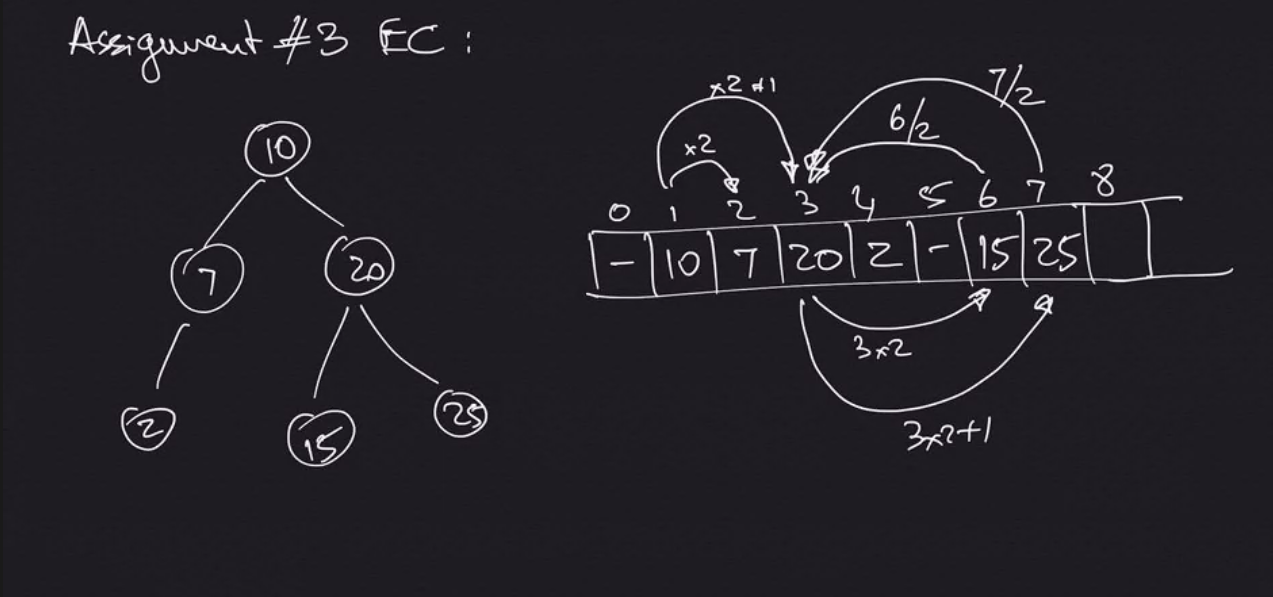 Assignment #3 EC:
10
7 20
2 15 25
x2 +1 7/2
x2 6/2
0 1 2 3 4 5 6 7 8
- 10 7 20 2 - 15 25
3x2
3x2+1